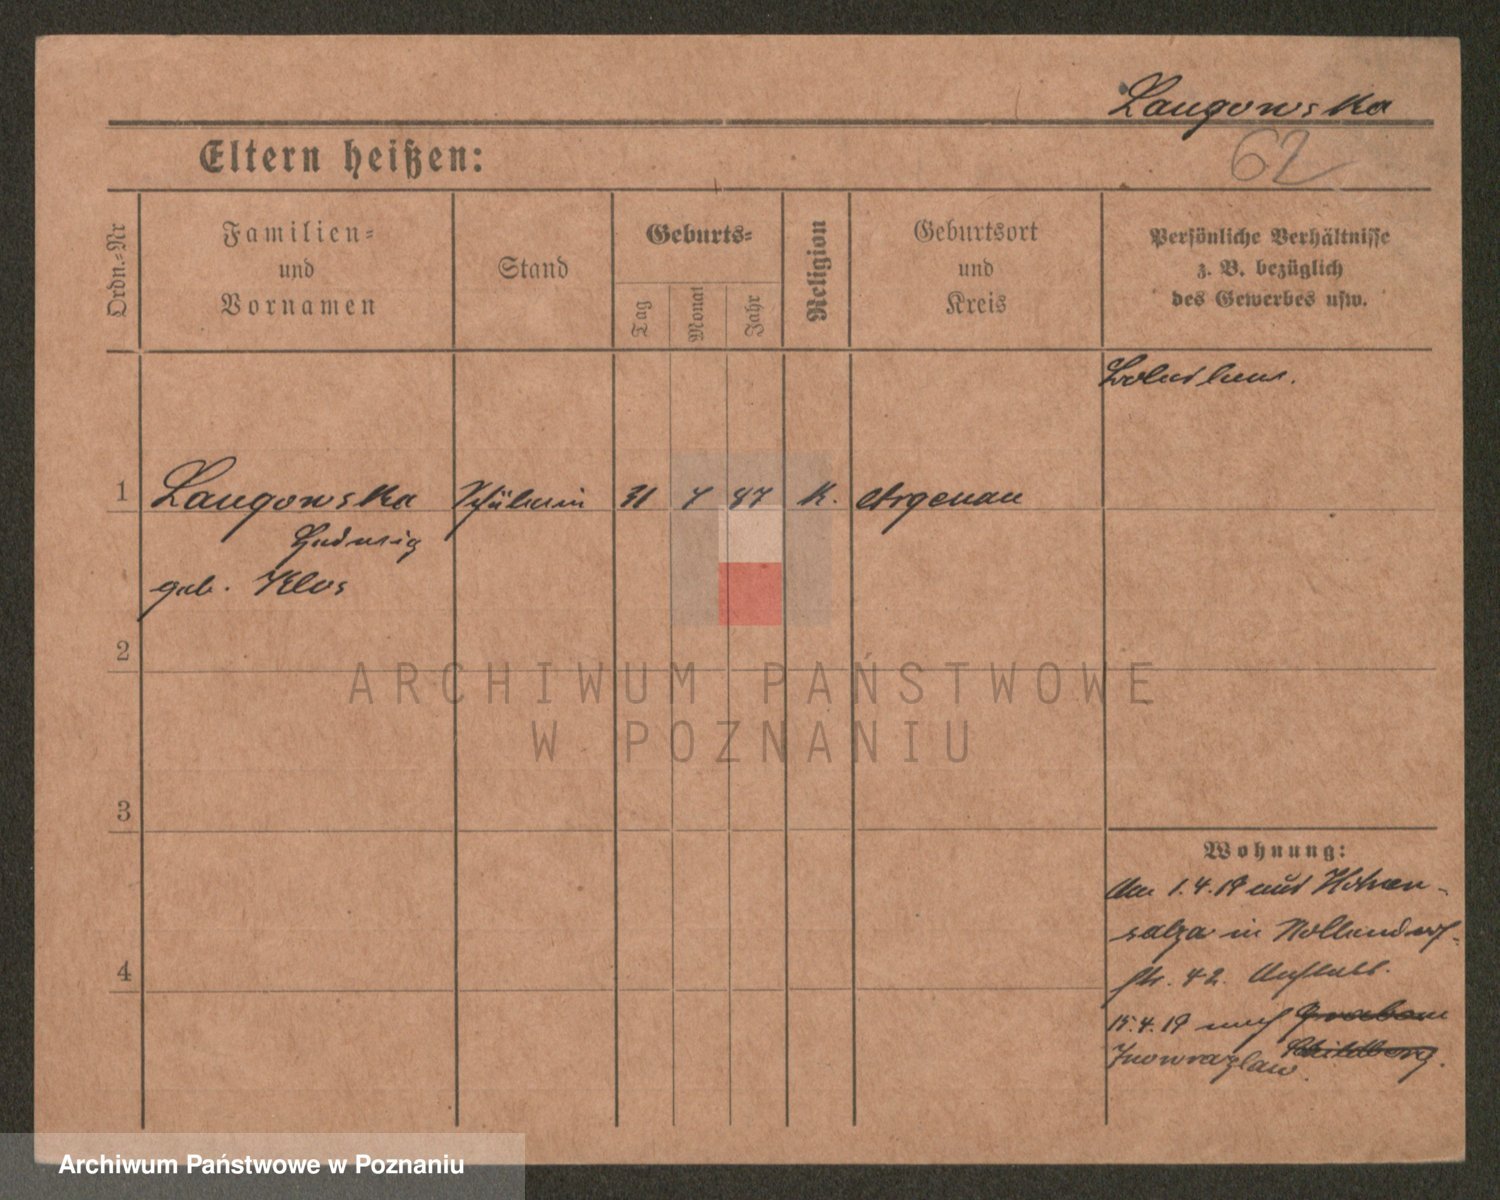 Langowska
62
Eltern heißen:
Ordn.-Nr
Familien-
und
Vornamen
Stand
Geburts-
Tag
Monat
Jahr
Religion
Geburtsort
und
Kreis
Persönliche Verhältnisse
z. B. bezüglich
des Gewerbes usw.
1 Langowska Schülerin 31 7 87 K. Argenau
Hedwig
geb. Klos
2
3
4
Wohnung:
Am 1.4.19 aus Hohen-
salza in Nollendorf-
str. 42.
15.4.19 nach Grabow
Schildberg.
Inowrazlaw.
ARCHIWUM PAŃSTWOWE
W POZNANIU
Archiwum Państwowe w Poznaniu